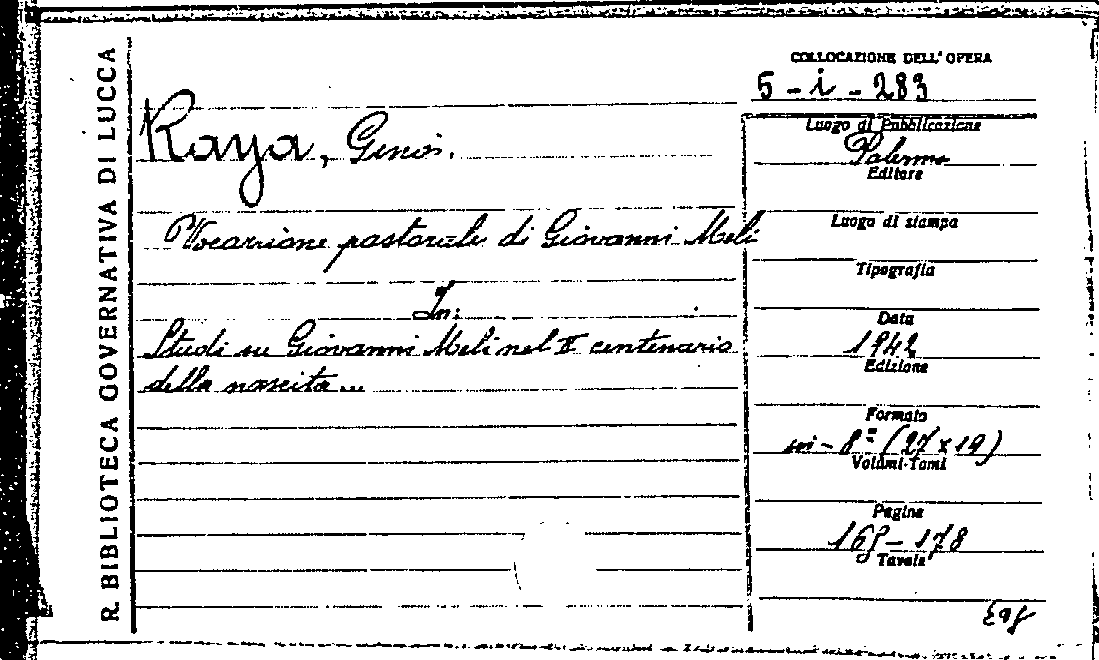 R. BIBLIOTECA GOVERNATIVA DI LUCCA
COLLOCAZIONE DELL'OPERA
5 - i - 283
Raya, Gino.
Vocazione pastorale di Giovanni Meli
In:
Studi su Giovanni Meli nel II centenario
della nascita...
Luogo di Pubblicazione
Palermo
Editore
Luogo di stampa
Tipografia
Data
1942
Edizione
Formato
in - 8º (27 x 19)
Volumi-Tomi
Pagine
- 178
Tavole